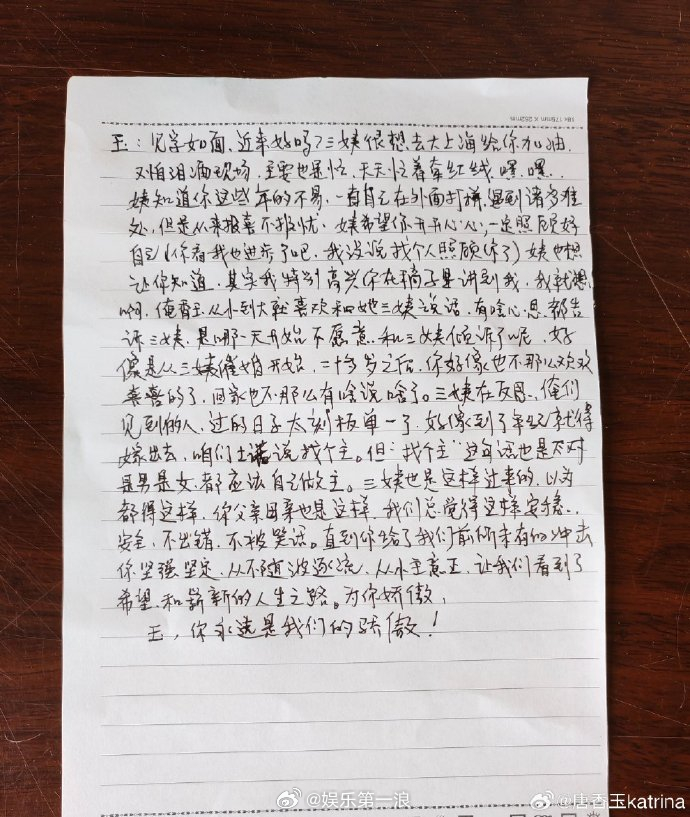 18K 179mm X 252mm
玉：见字如面，近来好吗？三姨很想去大上海给你加油，
又怕泪洒现场，主要也是忙，天天忙着牵红线，嘿，嘿..
姨知道你这些年的不易，一直自己在外面打拼，遇到诸多难
处，但是从来报喜不报忧，姨希望你开开心心，一定照顾好
自己（你看我也进步了吧，我没说找个人照顾你了）姨也想
让你知道，其实我特别高兴你在稿子里讲到我，我就想
啊，俺香玉从小到大就喜欢和她三姨说话，有啥心思都告
诉三姨，是哪一天开始不愿意和三姨倾诉了呢，好
像是从三姨催婚开始，二十多岁之后，你好像也不那么欢欢
喜喜的了，回家也不那么有啥说啥了。三姨在反思，俺们
见到的人，过的日子太刻板单一了，好像到了年纪就得
嫁出去，咱们土话说找个主。但“找个主”这句话也是不对
是男是女，都应该自己做主。三姨也是这样过来的，以为
都得这样，你父亲母亲也是这样，我们总觉得这样安稳..
安全，不出错，不被笑话。直到你给了我们前所未有的冲击
你坚强坚定，从不随波逐流，从小主意正，让我们看到了
希望和崭新的人生之路。为你骄傲，
玉，你永远是我们的骄傲！
@娱乐第一浪
@唐香玉katrina